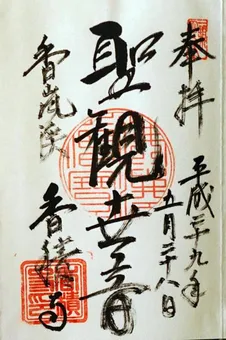 奉拝
平成二十九年
五月二十八日
聖観世音
香嵐渓
香積寺